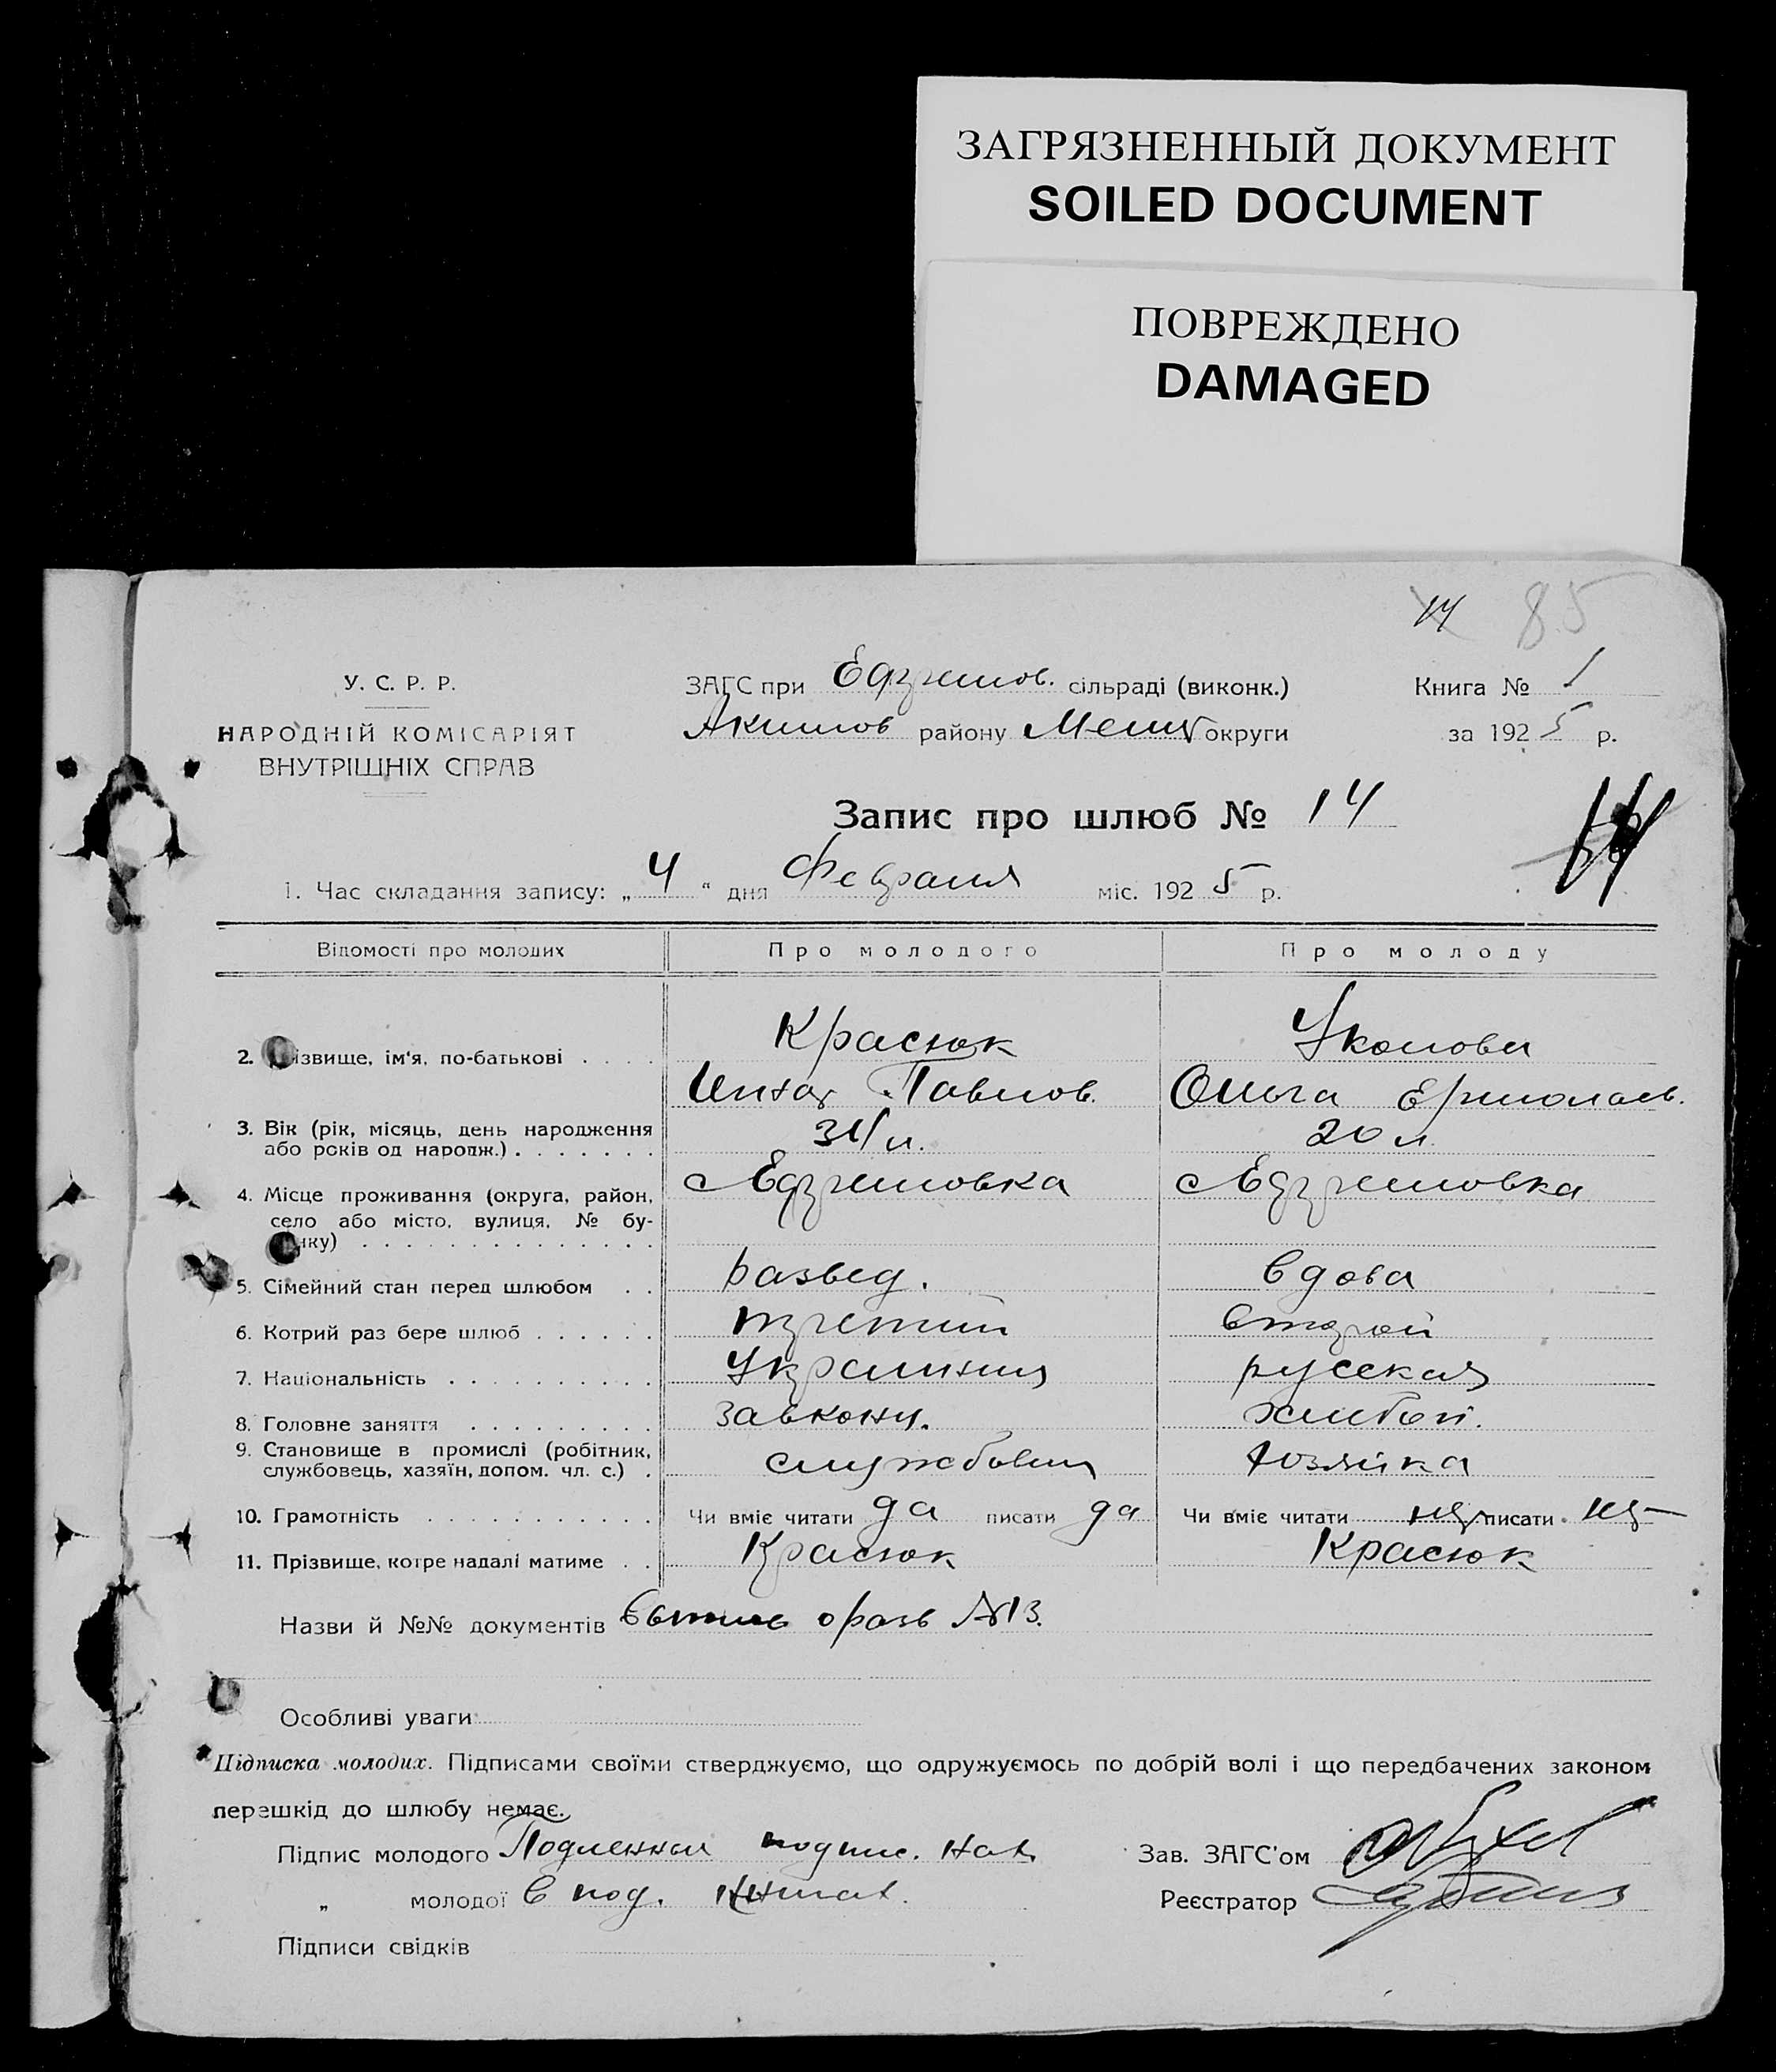 ЗАГРЯЗНЕННЫЙ ДОКУМЕНТ
SOILED DOCUMENT
ПОВРЕЖДЕНО
DAMAGED
14 85
У. С. Р. Р.
НАРОДНІЙ КОМІСАРІЯТ
ВНУТРІШНІХ СПРАВ
ЗАГС при сільраді (виконк.)
Акимов району округи
Книга № 1
за 1925 р.
Запис про шлюб № 14
1. Час складання запису: „ 4 “ дня Февраля міс. 1925 р.
Відомості про молодих Про молодого Про молоду
2. Прізвище, ім'я, по-батькові . . . . Красюк
Павлов. Ольга Ермолаев.
3. Вік (рік, місяць, день народження
або років од народж.) . . . . . . . 31 л. 20 л
4. Місце проживання (округа, район,
село або місто, вулиця, № бу-
динку) . . . . . . . . . . . . . .
5. Сімейний стан перед шлюбом . . развед. вдова
6. Котрий раз бере шлюб . . . . . . третий второй
7. Національність . . . . . . . . . . украинец русская
8. Головне заняття . . . . . . . . .
9. Становище в промислі (робітник,
службовець, хазяїн, допом. чл. с.) . хозяйка
10. Грамотність . . . . . . . . . . . Чи вміє читати да писати да Чи вміє читати нет писати нет
11. Прізвище, котре надалі матиме . . Красюк Красюк
Назви й №№ документів о разв №13.
Особливі уваги
Підписка молодих. Підписами своїми стверджуємо, що одружуємось по добрій волі і що передбачених законом
перешкід до шлюбу немає.
Підпис молодого
„ молодої
Підписи свідків
Зав. ЗАГС'ом
Реєстратор